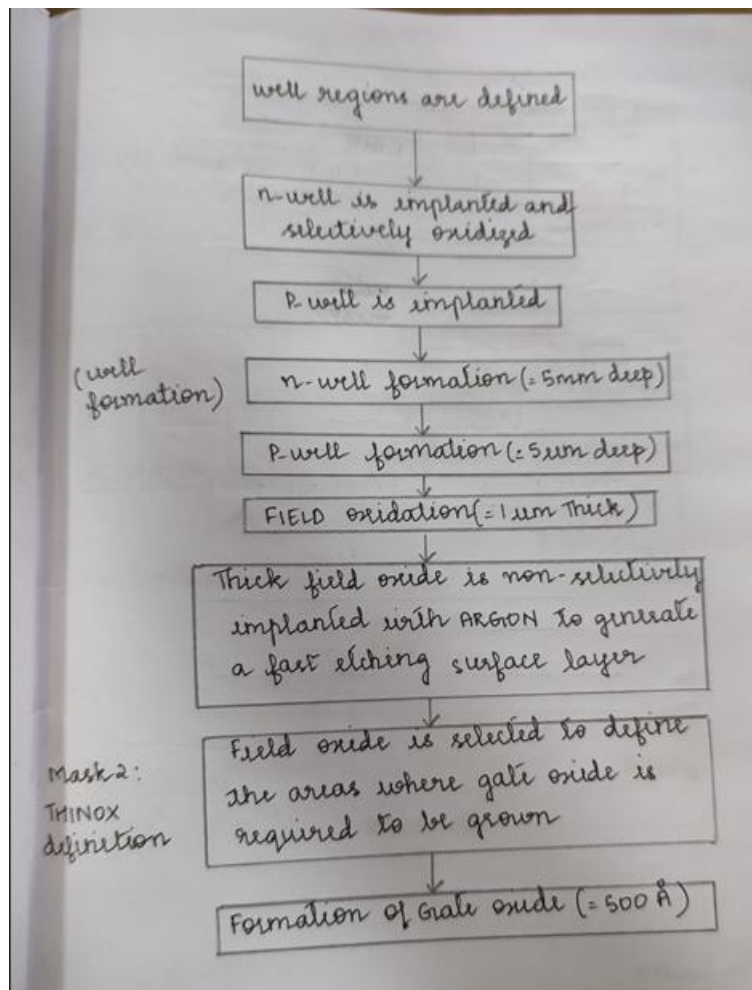 well regions are defined
n-well is implanted and
selectively oxidized
P-well is implanted
(well
formation)
n-well formation (= 5mm deep)
P-well formation (= 5um deep)
FIELD oxidation (= 1 um Thick)
Thick field oxide is non-selectively
implanted with ARGON to generate
a fast etching surface layer
Mask 2:
THINOX
definition
Field oxide is selected to define
the areas where gate oxide is
required to be grown
Formation of Grate oxide (= 500 Å)